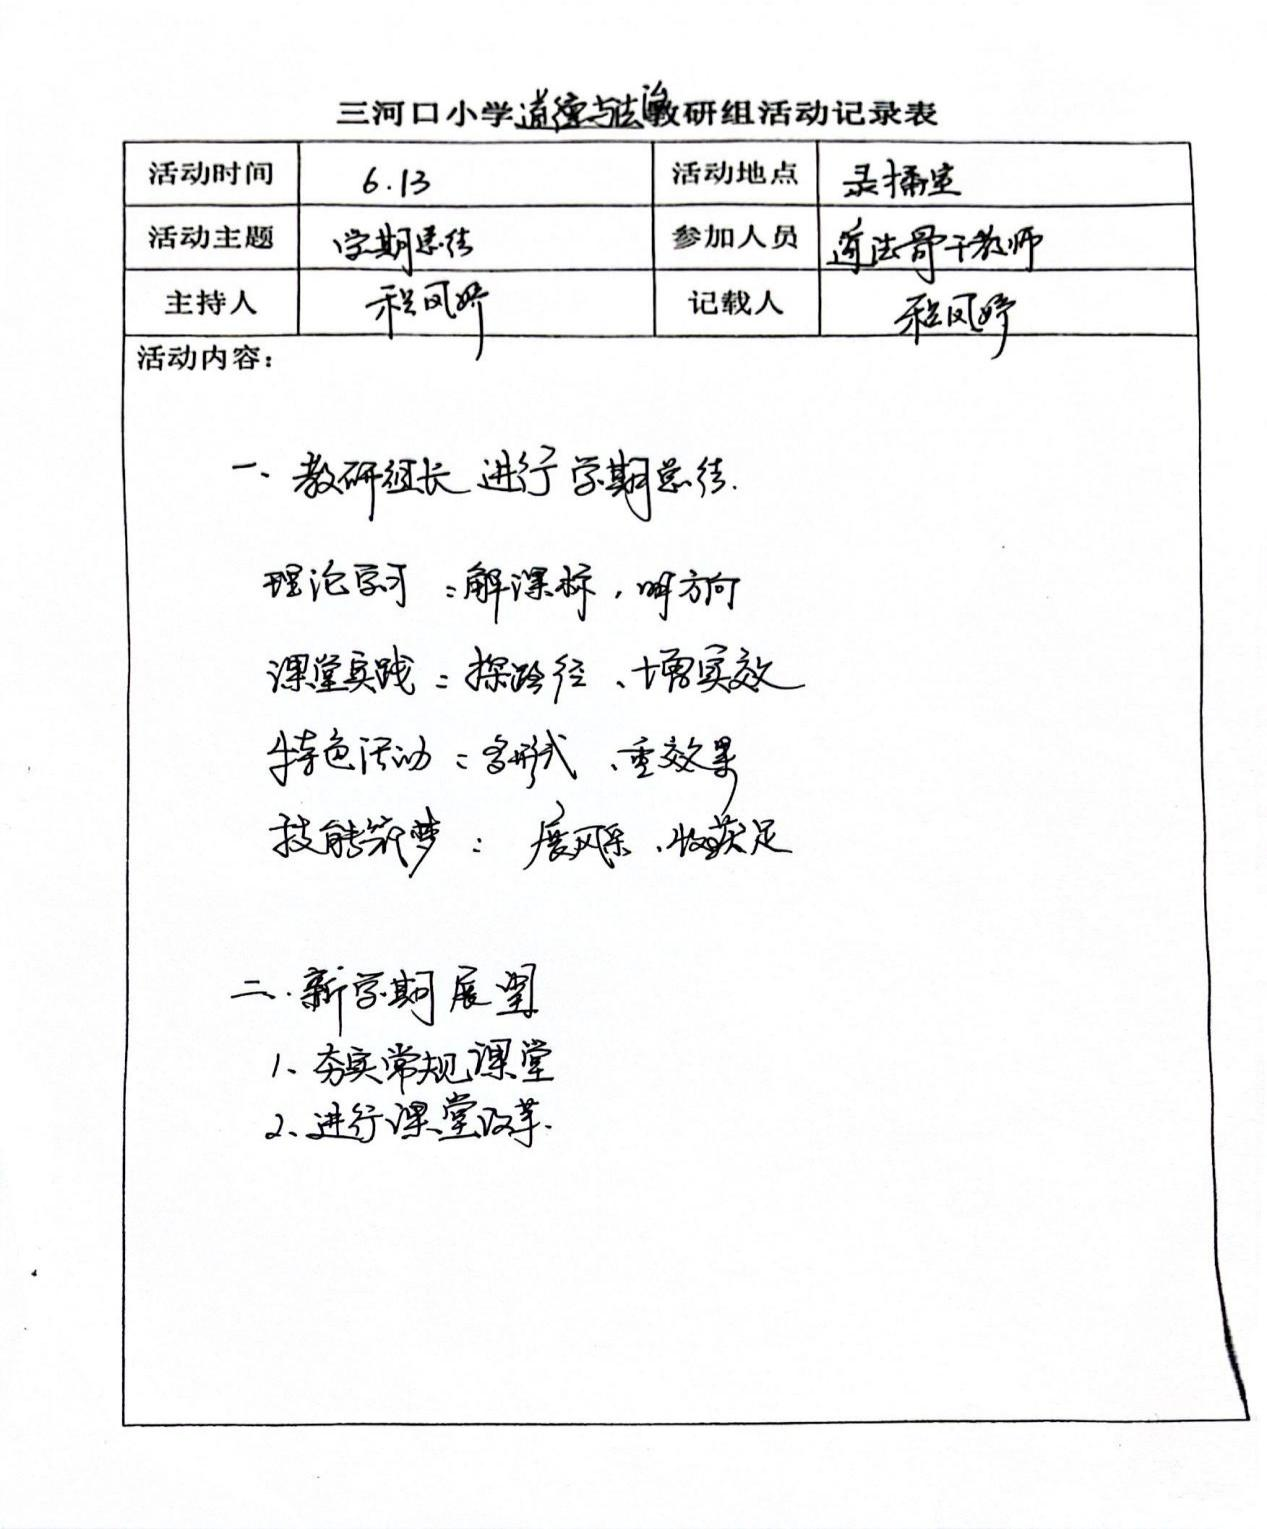 三河口小学道德与法治教研组活动记录表
活动时间 6.13 活动地点 录播室
活动主题 学期总结 参加人员 道法骨干教师
主持人 程凤婷 记载人 程凤婷
活动内容：
一、教研组长进行学期总结.
理论学习：解课标，明方向
课堂实践：探路径、增实效
特色活动：多形式、重效果
技能筑梦：展风采、收获足
二.新学期展望
1、夯实常规课堂
2、进行课堂改革.